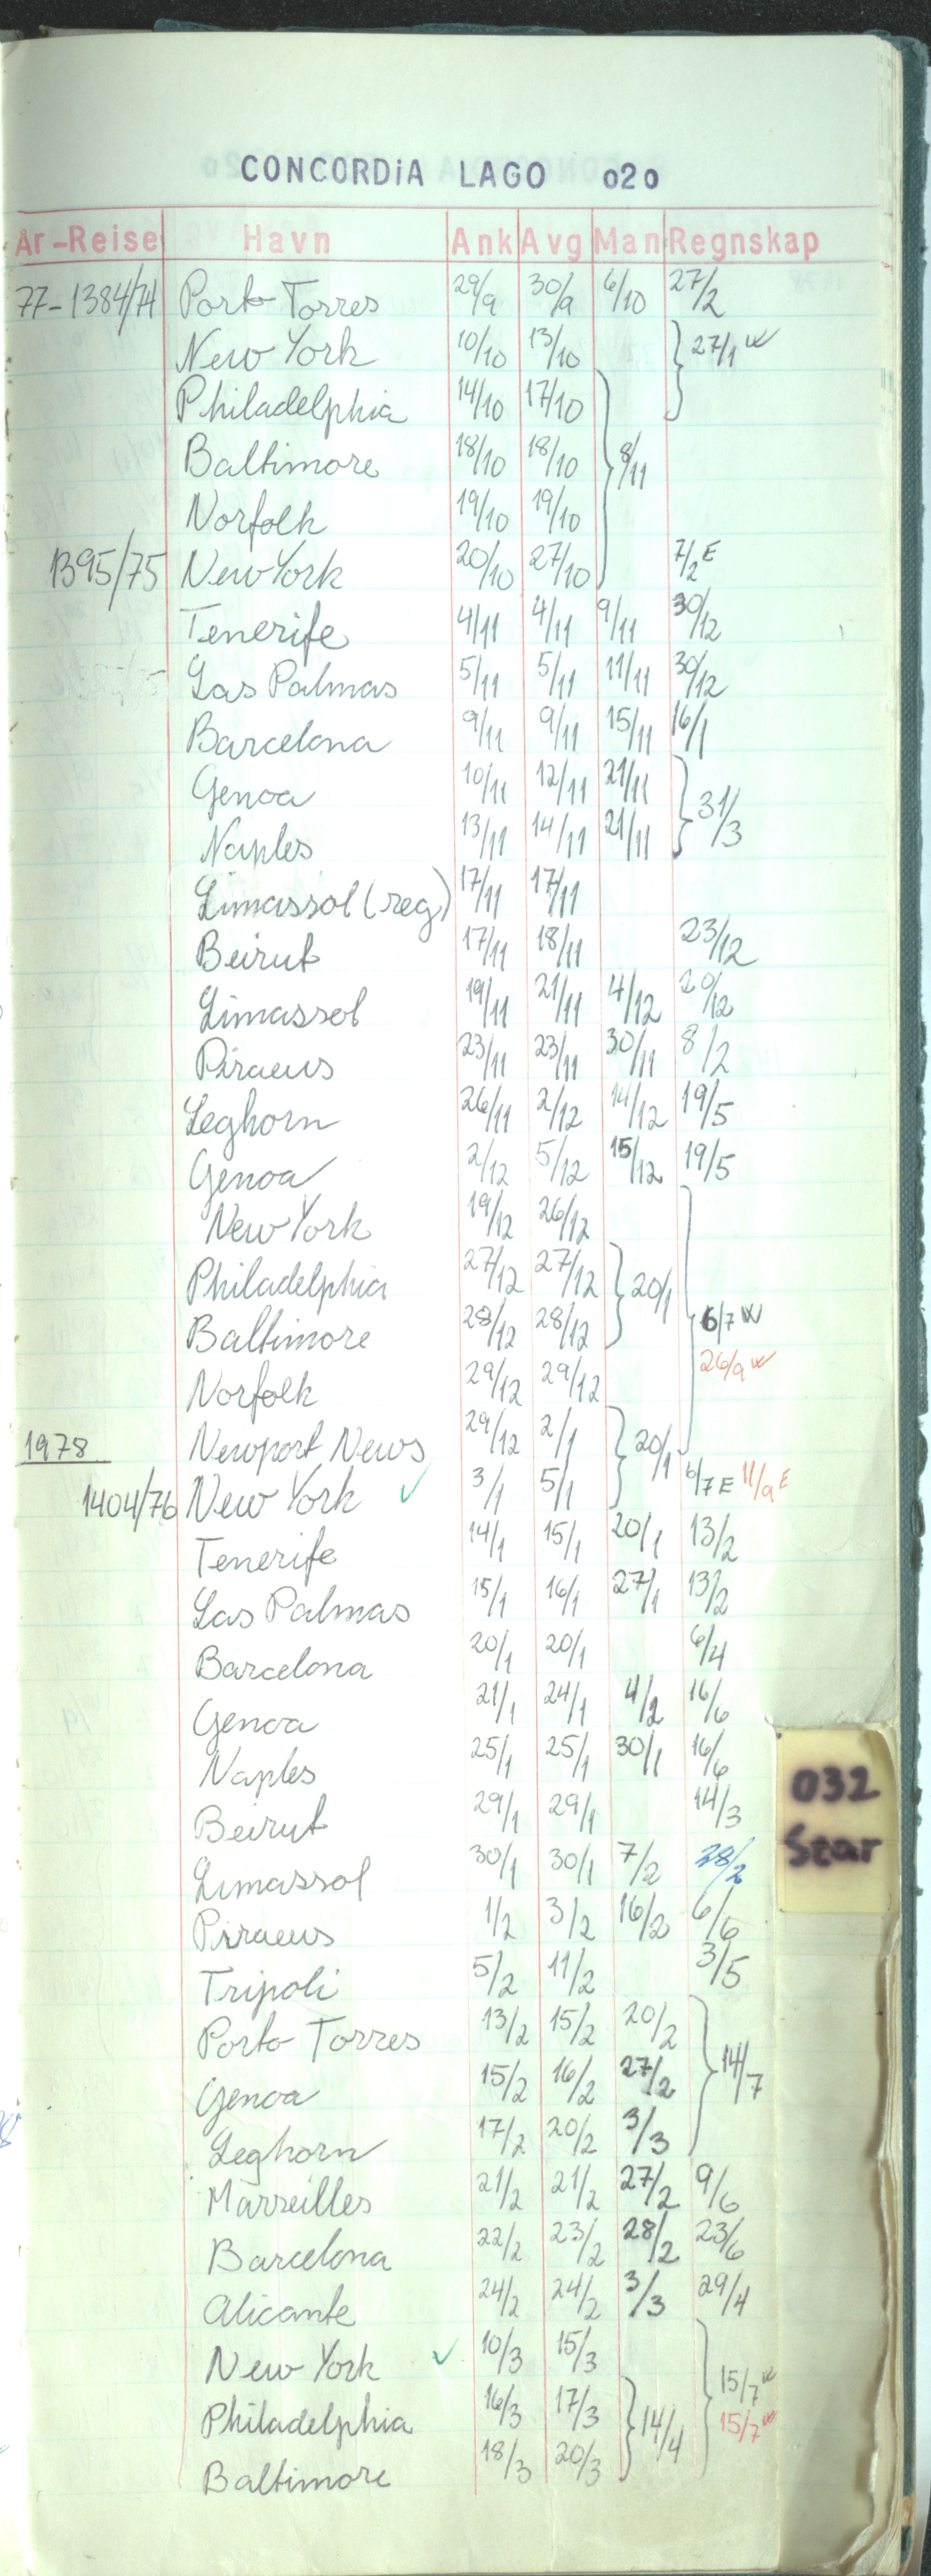 CONCORDiA LAGO 020
År-Reise Havn Ank Avg Man Regnskap
77-1384/74 Porto Torres 29/9 30/9 6/10 27/2
New York 10/10 13/10 } 27/1 W
Philadelphia 14/10 17/10
Baltimore 18/10 18/10 } 8/11
Norfolk 19/10 19/10
1395/75 New York 20/10 27/10 7/2 E
Tenerife 4/11 4/11 9/11 30/12
Las Palmas 5/11 5/11 11/11 30/12
Barcelona 9/11 9/11 15/11 16/1
Genoa 10/11 12/11 21/11 } 31/3
Naples 13/11 14/11 21/11
Limassol (reg) 17/11 17/11
Beirut 17/11 18/11 23/12
Limassol 19/11 21/11 4/12 20/12
Piraeus 23/11 23/11 30/11 8/2
Leghorn 26/11 2/12 14/12 19/5
Genoa 2/12 5/12 15/12 19/5
New York 19/12 26/12
Philadelphia 27/12 27/12 } 20/1
Baltimore 28/12 28/12 } 6/7 W
26/9 W
Norfolk 29/12 29/12
1978 Newport News 29/12 2/1 } 20/1
1404/76 New York ✓ 3/1 5/1 6/7 E 11/9 E
Tenerife 14/1 15/1 20/1 13/2
Las Palmas 15/1 16/1 27/1 13/2
Barcelona 20/1 20/1 6/4
Genoa 21/1 24/1 4/2 16/6
Naples 25/1 25/1 30/1 16/6
Beirut 29/1 29/1 14/3
Limassol 30/1 30/1 7/2 28/2
Piraeus 1/2 3/2 16/2 6/6
Tripoli 5/2 11/2 3/5
Porto Torres 13/2 15/2 20/2
Genoa 15/2 16/2 27/2 } 14/7
Leghorn 17/2 20/2 3/3
Marseilles 21/2 21/2 27/2 9/6
Barcelona 22/2 23/2 28/2 23/6
Alicante 24/2 24/2 3/3 29/4
New York ✓ 10/3 15/3 } 15/7 W
Philadelphia 16/3 17/3 } 14/4 15/7 W
Baltimore 18/3 20/3
032
Star